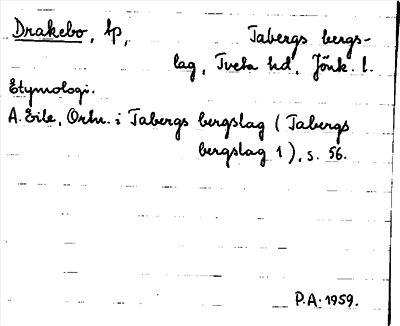 Drakebo, lp, Tabergs bergs-
lag, Tveta hd, Jönk. l.
Etymologi.
A. Eile, Ortn. i Tabergs bergslag (Tabergs
bergslag 1), s. 56.
P.A. 1959.